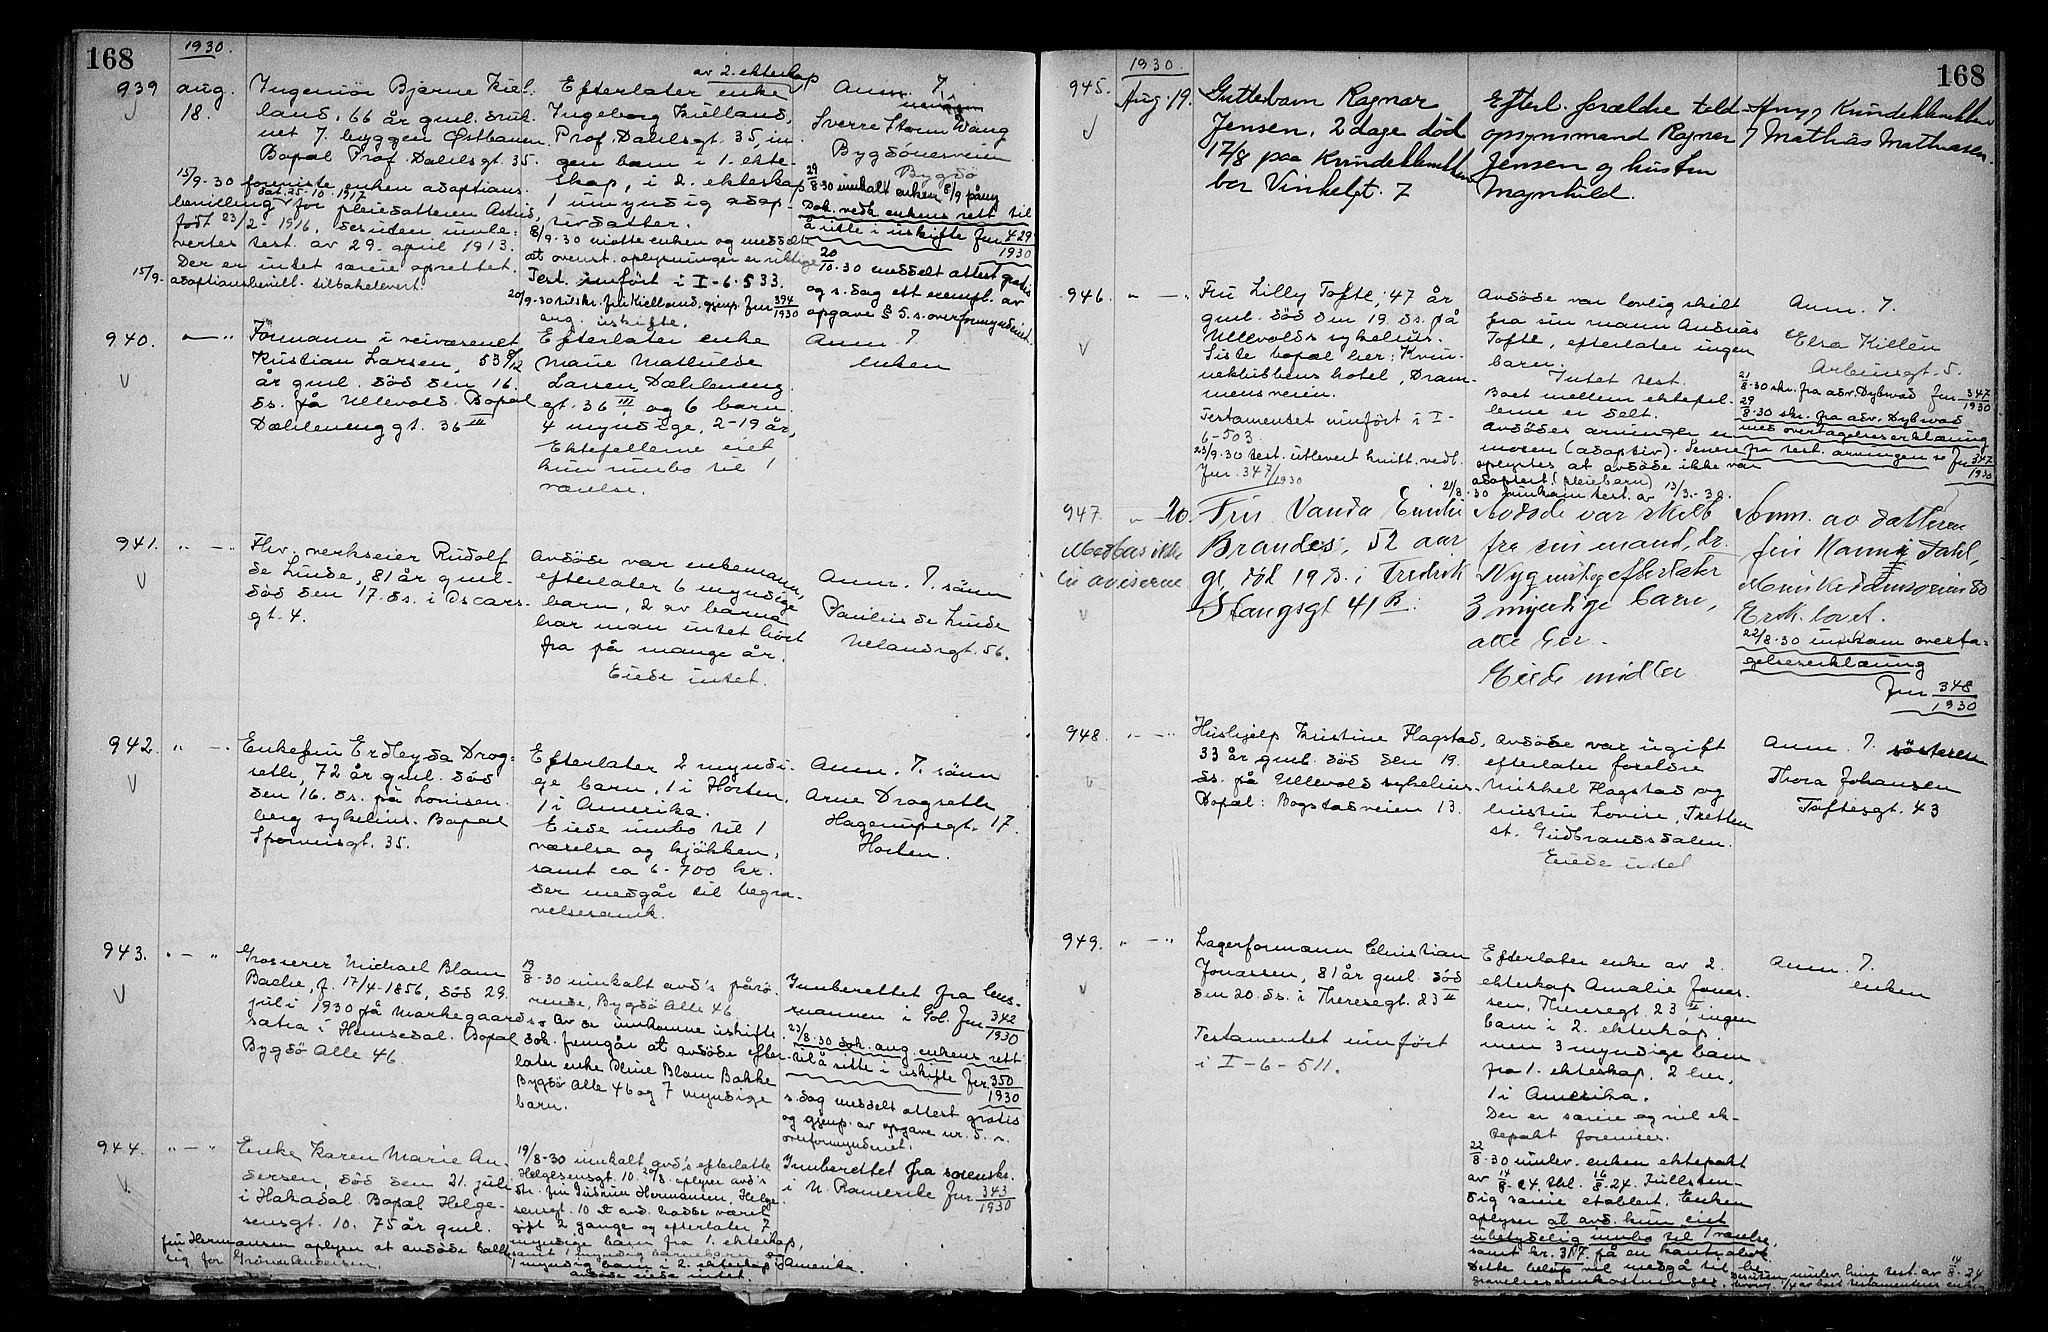 168
1930.
939
aug.
18.
Ingeniör Bjarne Kiel-
land, 66 år gml. druk-
net 7. byggen Østbanen
Bopæl Prof. Dahlsgt. 35.
15/9-30 foreviste enken adoptions-
dat. 25-10-1917
bevilling for pleiedatteren Astrid,
født 23/2-1916, desuten innle-
vertes test. av 29. april 1913.
Der er intet særeie oprettet.
15/9. adoptionsbevill. tilbakelevert.
av 2. ekteskap
Efterlater enke
Ingeborg Kielland,
Prof. Dahlsgt. 35, in-
gen barn i 1. ekte-
skap, i 2. ekteskap
1 umyndig adop-
tivdatter.
8/9-30 møtte enken og meddelte
at ovenst. oplysninger er riktige
Test. innført i I-6-533.
20/9-30 tilskr. fru Kielland, gjenp. Jnr 394/1930
ang. uskifte.
Anm. 7.
Sverre Storm Wang
Bygdönesveien
Bygdö
29/8-30 innkalt enken 8/9 påny
Dok. vedk. enkens rett til
å sitte i uskifte Jnr 429/1930
20/10-30 meddelt attest gratis
og s. dag ett exempl. av
opgave § 5. s. overformynderiet.
940.
Formann i veivæsenet
Kristian Larsen, 53 9/12
år gml. död den 16.
ds. på Ullevold. Bopæl
Dæhleneng gt. 36 III
Efterlater enke
Marie Mathilde
Larsen, Dæhleneng
gt. 36 III, og 6 barn.
4 myndige, 2-19 år,
Ektefellerne eiet
kun innbo til 1
værelse.
Anm. 7
enken
941.
Fhv. verkseier Rudolf
de Linde, 81 år gml.
död den 17. ds. i Oscars-
gt. 4.
Avdöde var enkemann,
efterlater 6 myndige
barn, 2 av barna
har man intet hört
fra på mange år.
Eiede intet.
Anm. 7. sönn
Paulus de Linde
Uelandsgt. 56.
942.
Enkefru Erdleyda Drog-
seth, 72 år gml. död
den 16. ds. på Lovisen-
berg sykehus. Bopæl
Sporveisgt. 35.
Efterlater 2 myndi-
ge barn, 1 i Horten,
1 i Amerika.
Eiede innbo til 1
værelse og kjökken,
samt ca 6-700 kr.
der medgår til begra-
velsesomk.
Anm. 7. sönn
Arne Drogseth
Hagerupsgt. 17.
Horten.
943.
Grosserer Michael Blam
Bache, f. 17/4-1856, död 29.
juli 1930 på Markegaards-
sætra i Hemsedal. Bopæl
Bygdö Alle 46
19/8-30 innkalt avd's pårö-
rende, Bygdö Alle 46
Av de innkomne uskifte-
dok. fremgår at avdöde efter-
later enke Oline Blam Bakke
Bygdö Alle 46 og 7 myndige
barn.
Innberettet fra lens-
mannen i Gol. Jnr 342/1930
23/8-30 dok. ang. enkens rett
til å sitte i uskifte Jnr. 350/1930
s. dag meddelt attest gratis
og gjenp. av opgave nr. 5. s.
overformynderiet.
944.
Enke Karen Marie An-
dersen, död den 21. juli
i Hakadal Bopæl Helge-
sensgt. 10. 75 år gml.
fru Hermansen oplyser at avdöde kalte
sig for Gröner Andersen.
19/8-30 innkalt avd's efterlatte
Helgesensgt. 10. 20/8. oplyser avd's
dtr. fru Gudrun Hermansen, Helge-
sensgt. 10 at avd. hadde været
gift 2 gange og efterlater 7
myndige barn fra 1. ekteskap,
samt 1 myndig barnebarn og
1 myndig barn i 2. ekteskap i Amerika.
avdöde eiede intet.
Innberettet fra sorenskr.
i N. Romerike Jnr 343/1930
168
1930.
945.
Aug. 19.
Guttebarn Ragnar
Jensen, 2 dage død
17/8 paa Kvindeklinikken
bor Vinkelgt. 7
Efterl. forældre told-
opsynsmand Ragnar
Jensen og hustru
Magnhild.
Anm. Kvindeklinikken
7 Mathias Mathiasen.
946.
Fru Lilly Tofte, 47 år
gml. död den 19. ds. på
Ullevolds sykehus.
Siste bopæl her: Kvin-
neklubbens hotel, Dram-
mensveien.
Testamentet innfört i I-
6-503.
23/9.30 test. utlevert kvitt. vedl.
Jnr. 347/1930
Avdöde var lovlig skilt
fra sin mann Andreas
Tofte, efterlater ingen
barn.
Intet test.
Boet mellem ektefel-
lerne er delt.
Avdödes arvinger er
moren (adoptiv). Senere
oplystes at avdöde ikke var
adoptert (pleiebarn)
21/8-30 innkom test. av 13/3-30.
Anm. 7.
Elsa Killén
Arbinsgt. 5.
21/8-30 skr. fra adv. Dybwad Jnr 347/1930
29/8-30 skr. fra adv. Dybwad
med overtagelseserklæring
fra test. arvingen Jnr 347/1930
947.
20.
Medtas ikke
in aviserne
Fru Vanda Emilie
Brandes, 52 aar
gl, död 19 ds. i Fredrik
Stangsgt 41 B.
Avdöde var skilt
fra sin mand, dr.
Nygaard og efterlater
3 myndige barn,
alle her.
Eiede midler
Anm. av datteren
fru Nanni Dahl,
Munkedamsveien 80
Erkl. lovet.
22/8-30 innkom overta-
gelseserklæring
Jnr 348/1930
948.
Hushjelp Kristine Flagstad,
33 år gml. död den 19.
ds. på Ullevold sykehus.
Bopæl: Bogstadveien 13.
Avdöde var ugift
efterlater foreldre
Mikkel Flagstad og
hustru Lovise, Tretten
st. Gudbrandsdalen.
Eiede intet
Anm. 7. søsteren
Thora Johansen
Toftesgt. 43
949.
Lagerformann Christian
Jonassen, 81 år gml. död
den 20. ds. i Theresegt. 23 II
Testamentet innfört
i I-6-511.
Efterlater enke av 2.
ekteskap Amalie Jonas-
sen, Theresegt. 23 II, ingen
barn i 2. ekteskap,
men 3 myndige barn
fra 1. ekteskap, 2 her,
1 i Amerika.
Der er særeie og vil ek-
tepakt forevises.
22/8-30 innlev. enken ektepakt
av 14/8-24. tbl. 16/8-24. Fullsten-
dig særeie etablert. Enken
oplyser at avd. kun eiet
ubetydelig innbo til 1 værelse,
samt kr. 317. på en kontrabok
Dette beløp vil medgå til be-
gravelsesomkostninger. Desuten innlev. hun test. av 14/8-24
Anm. 7.
enken